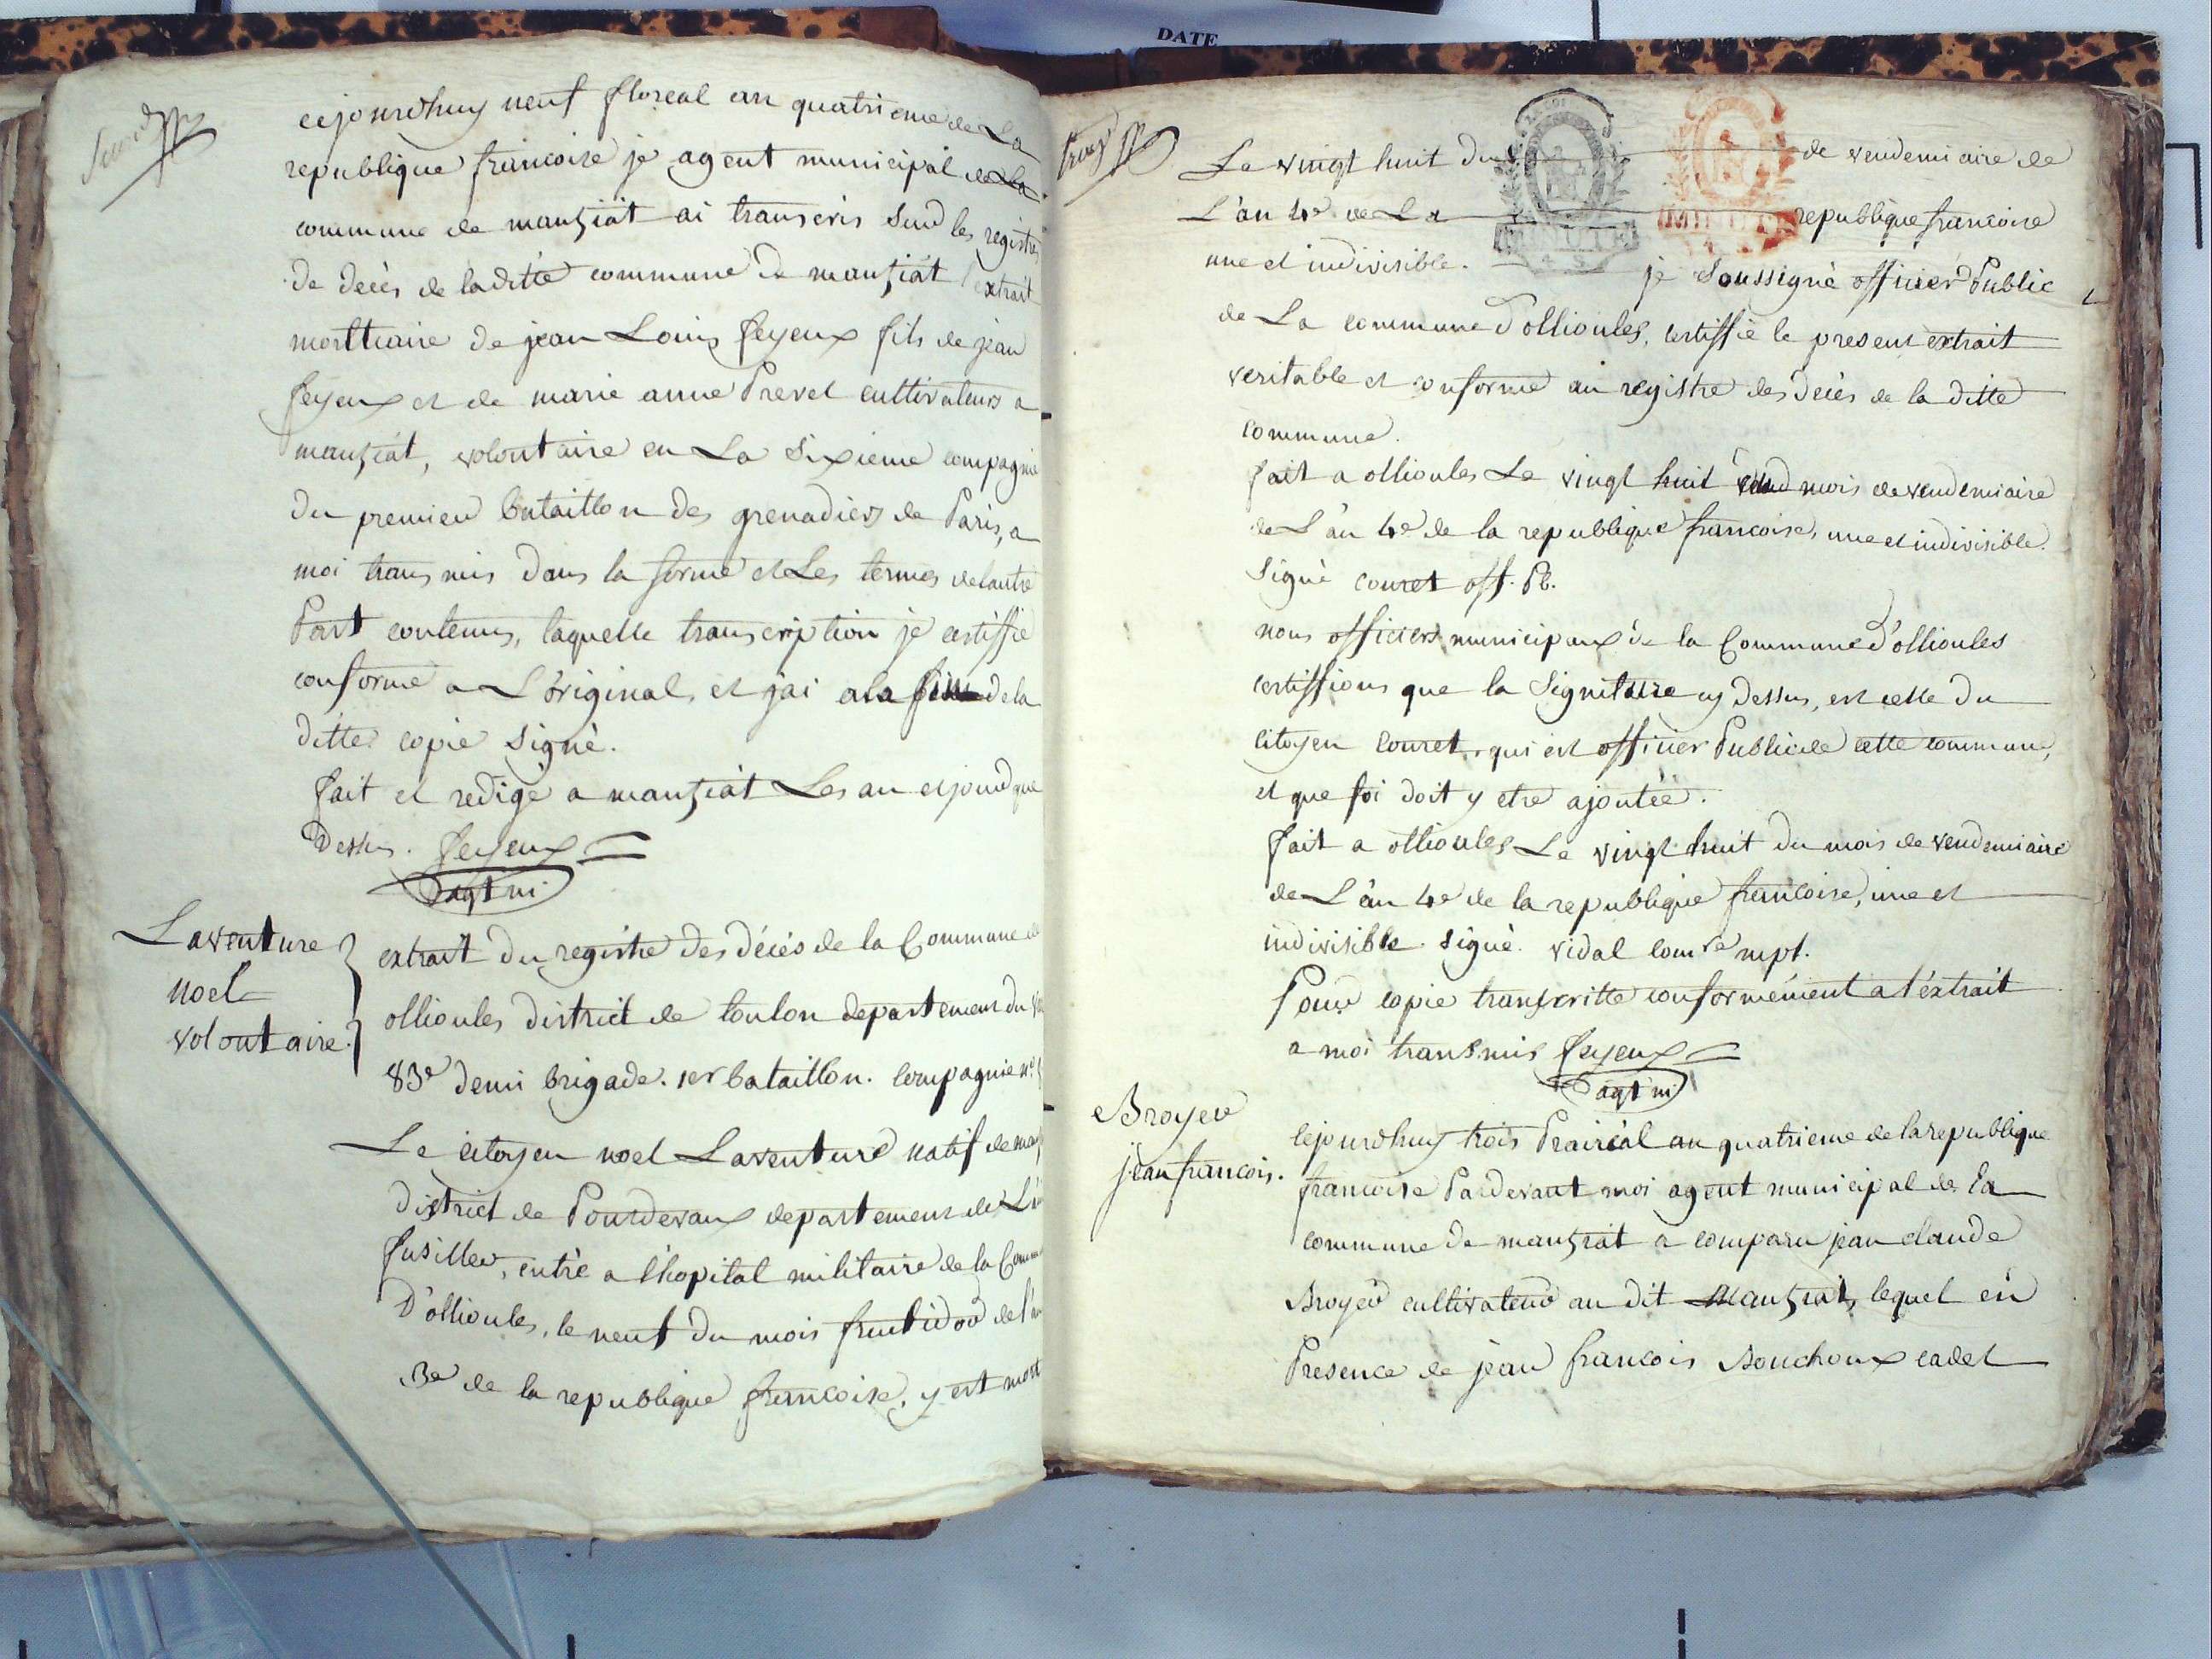 cejourdhuy neuf floreal an quatrieme de La
republique francoise je agent municipal de La
commune de manziat ai transcris Sur les registres
de deces de laditte commune de manziat l'extrait
morttraire de jean Louis feyeux fils de jean
feyeux et de marie anne Prevel cultivateurs a
manziat, volontaire en La Sixieme compagnie
Du premier bataillon des grenadiers de Paris, a
moi transmis Dans la forme et Les termes delautre
Part contenus, laquelle transcription je certiffie
conforme a L'original, et j'ai ala fin de la
ditte copie Signé.
fait et redigé a manziat Les an et jour que
Dessus. feyeux
agt m.
Laventure
noel
volontaire.
extrait Du registre Des décés de la Commune
ollioules district de toulon departement du
83e demi brigade. 1er bataillon. compagnie n°
Le citoyen noel Laventure natif de
District de Pontdevaux departement de
fusiller, entré a l'hopital militaire de la
D'ollioules, le neuf Du mois fructidor de l'an
3e de la republique francoise, y est mort
Le vingt huit Du de vendemiaire de
L'an 4e de La republique francoise
une et indivisible. je Soussigné officier Public
de La commune d'ollioules, certiffie le present extrait
veritable et conforme au registre des décés de la ditte
commune.
fait a ollioules Le vingt huit du mois de vendemiaire
de L'an 4e de la republique francoise, une et indivisible.
Signé couret off. Pb.
MINUTE
MINUTE
nous officiers municipaux de la Commune d'ollioules
certiffions que la Signature cy Dessus, est celle Du
citoyen Couret, qui est officier Public de cette commune,
et que foi doit y etre ajoutée.
fait a ollioules Le vingt huit Du mois de vendemiaire
de L'an 4e de la republique francoise, une et
indivisible. Signé. vidal
Pour copie transcritte conformément a l'éxtrait
a moi transmis feyeux
agt m.
Broyer
jean francois.
Cejourdhuy trois Prairéal an quatrieme de la republique
francoise Pardevant moi agent municipal de La
commune de manziat a comparu jean claude
Broyer cultivateur au dit Manziat, lequel en
Presence de jean francois Bouchoux cadet
DATE